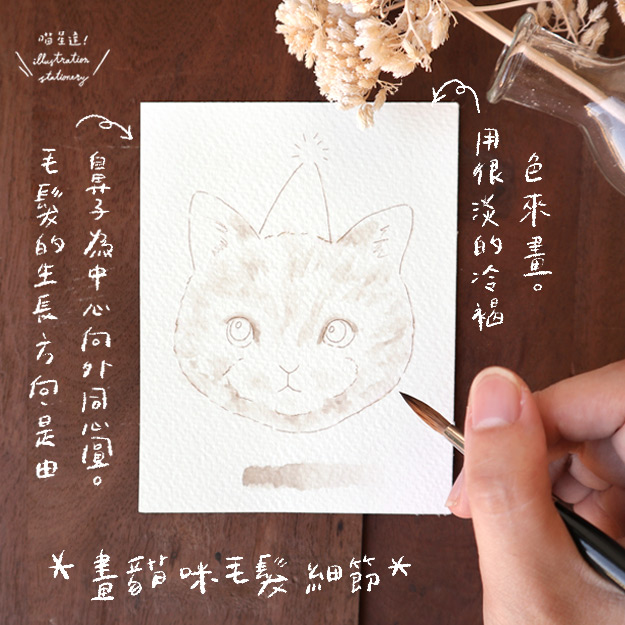 喵星達!
illustration
stationery
毛髮的生長方向是由
鼻子為中心向外同心圓。
用很淡的冷褐
色來畫。
*畫貓咪毛髮細節*